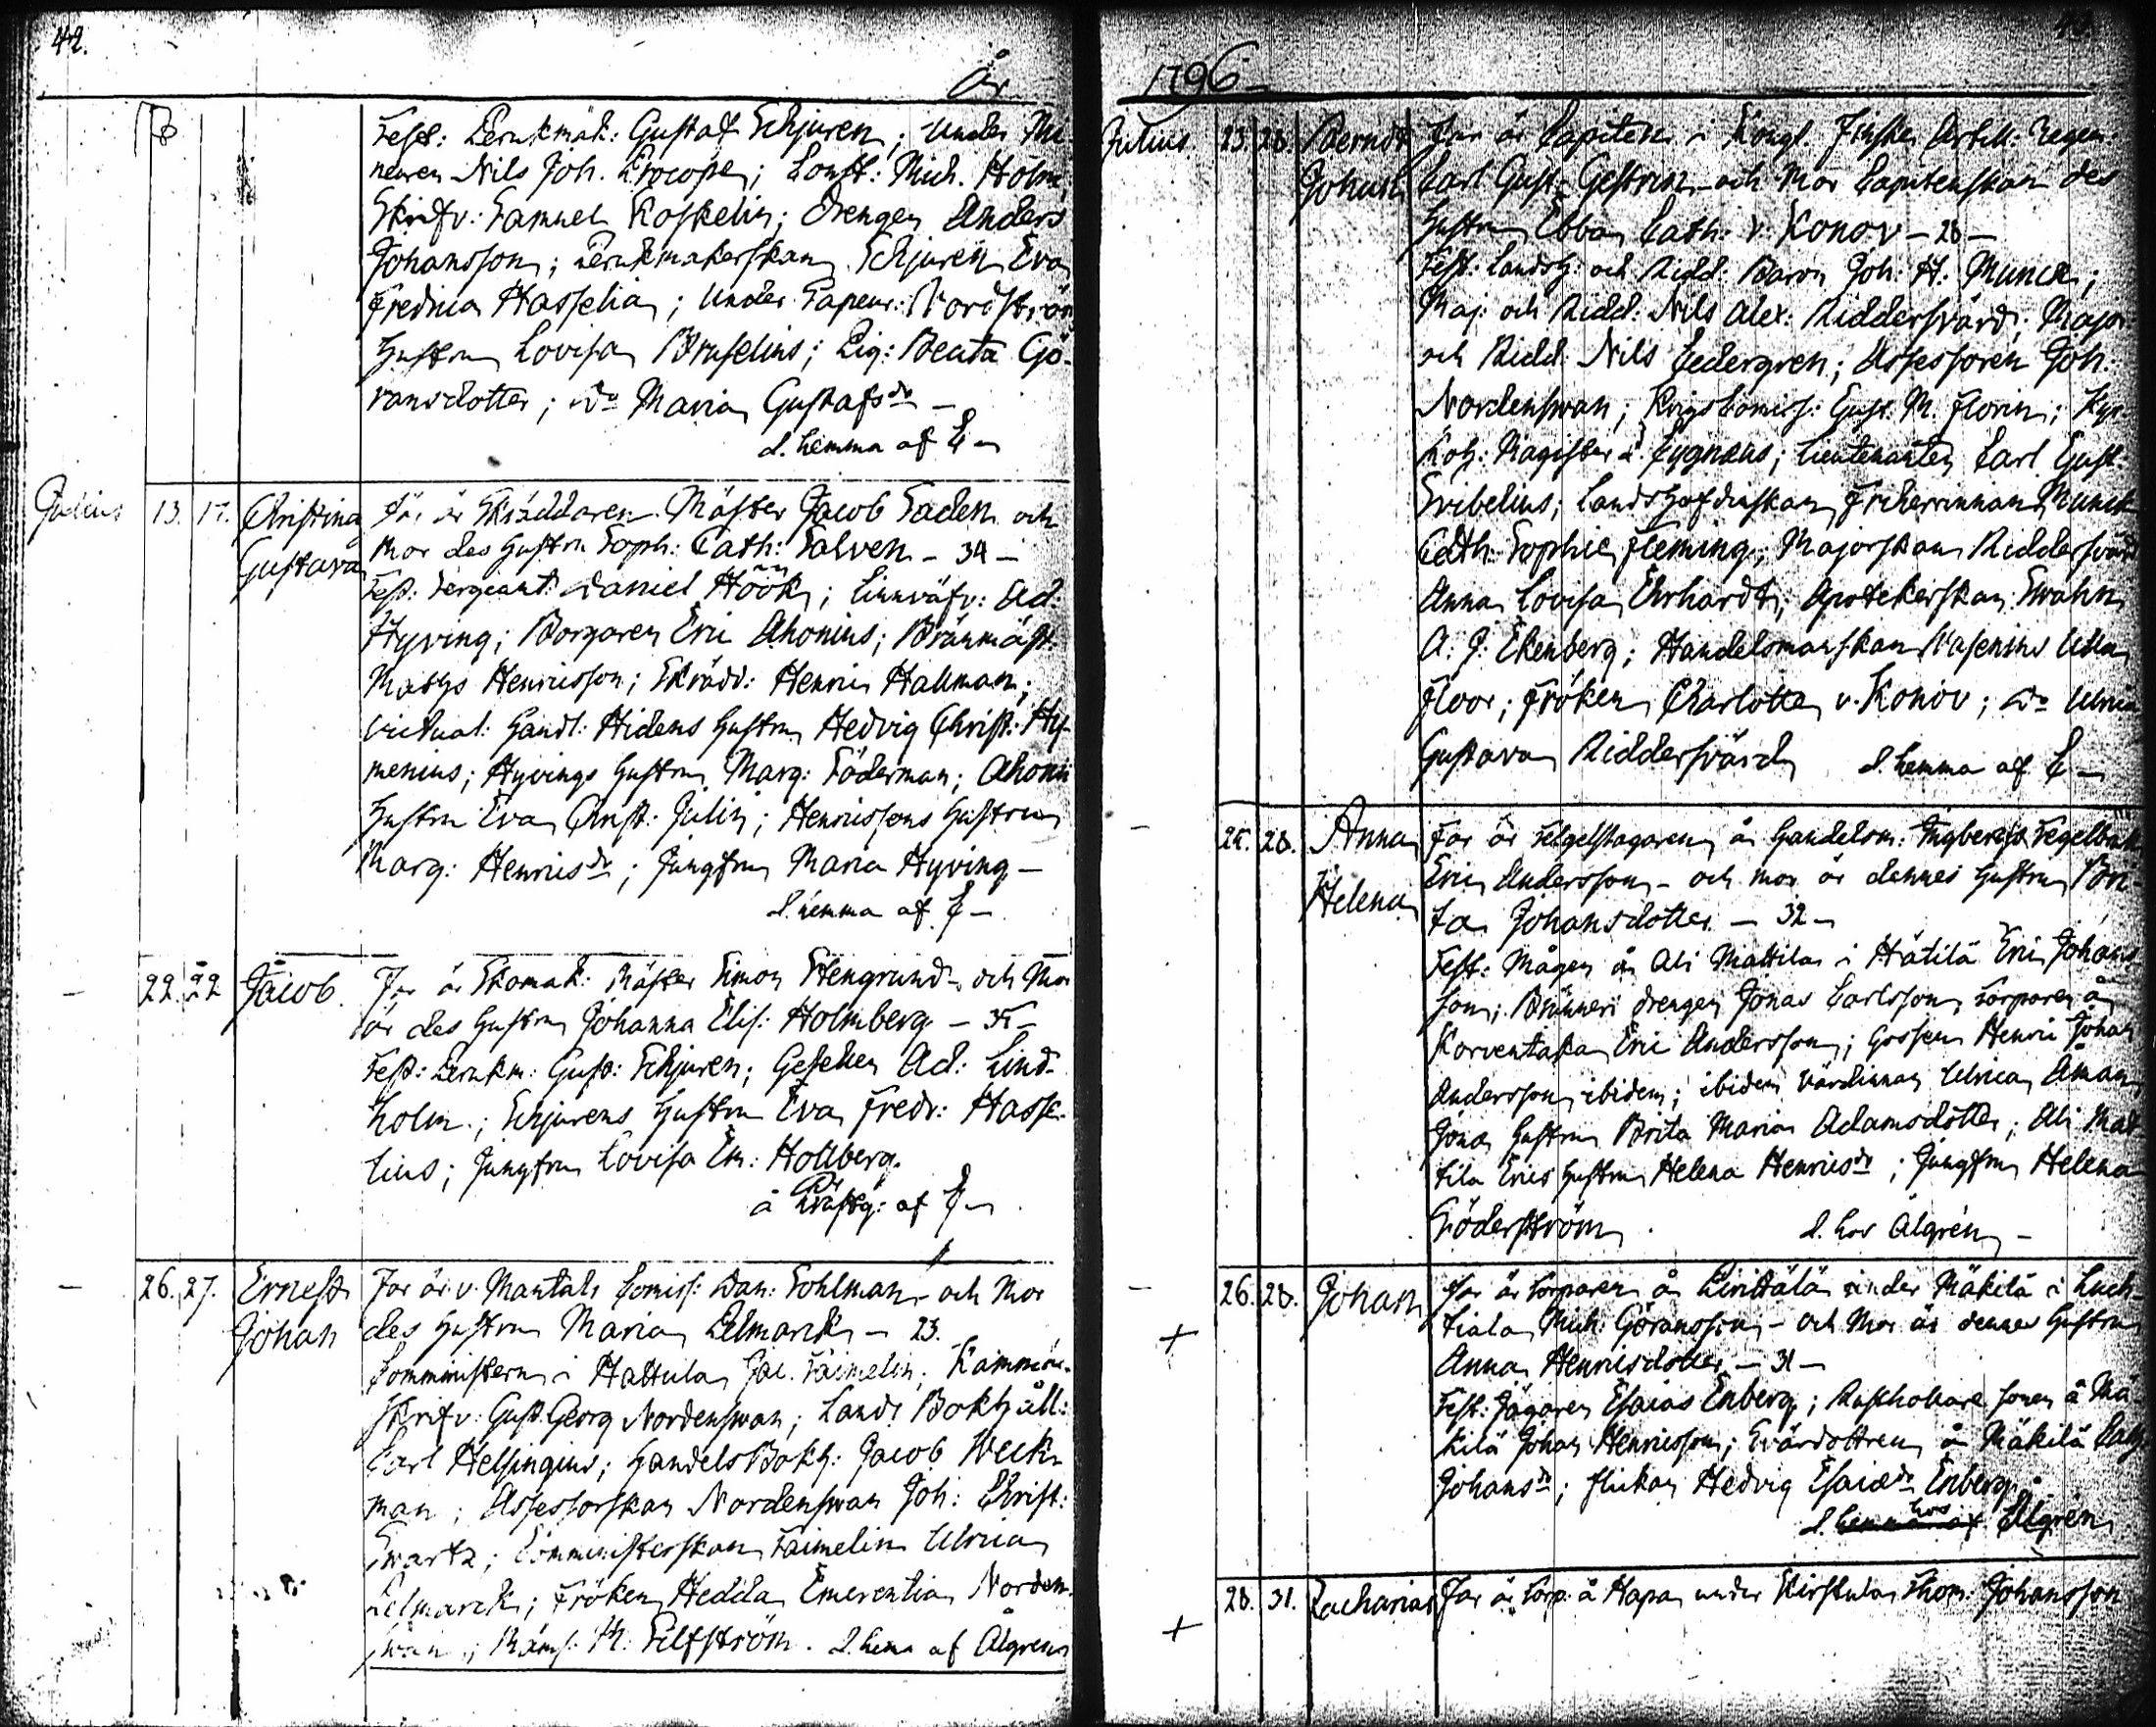 42.
År
Test: Perukmak: Gustaf Schjuren; Under Mi
neuren Nils Joh. Procope; Const: Mich. Holm
Skrifv: Samuel Koskelin; Drengen Anders
Johansson; Perukmakerskan Schjuren Eva
Fredrica Hasselia; Under Sapeur: Nordström
Hustru Lovisa Bruselius; Pig: Beata Gö-
ransdotter; do Maria Gustafsdr –
d. hemma af E –
Julius 13. 17. Christina Far är Skräddaren Mäster Jacob Saden och
Gustava Mor des Hustru Soph: Cath: Salven – 34 –
Test: Sergeant: Daniel Höök; Linnväfv: Ad:
Hyving; Borgaren Eric Ahonius; Brännmäst:
Matts Henricsson; Skrädd: Henric Hallman;
Victual: Handl: Hidens Hustru Hedvig Christ: Hy-
menius; Hyvings Hustru Marg: Söderman; Ahonii
Hustru Eva Christ: Julin; Henricssons Hustru
Marg: Henricsdr; Jungfru Maria Hyving –
d. hemma af E –
– 22. 22 Jacob. Far är Skomak: Mäster Simon Stengrund – och Mor
är des Hustru Johanna Elis: Holmberg – 35 –
Test: Perukm: Gust: Schjuren; Gesellen Ad: Lind-
holm; Schjurens Hustru Eva Fredr: Hasse-
lius; Jungfru Lovisa Em: Hollberg.
å Prästg: af E –
– 26. 27. Ernest Far är v. Mantals Comiss: Dan: Sohlman – och Mor
Johan des Hustru Maria Pelmarck – 23.
Comministern i Hattula Jac. Taimelin; Kammar-
skrifv: Gust. Georg Nordenswan; Lands Bokhåll:
Carl Helsingius; Handels Bokh: Jacob Weck-
man; Assessorskan Nordenswan Joh: Christ:
Swartz; Comministerskan Taimelin Ulrica
Pelmarck; Fröken Hedda Emerentia Norden-
swan; Mams: M. Silfström. d. hema af Algren
1796 –
Julius. 23. 28. Berndt Far är Capiten i Kongl. Finska Artill: Regem:
Johan Carl Gust: Gestrin – och Mor Capitenskan des
Hustru Ebba Cath: v. Konov – 28 –
Test: Landsh: och Ridd: Baron Joh: H: Munck;
Maj: och Ridd: Nils Alex: Riddersvärd; Major
och Ridd: Nils Cedergren; Assessoren Joh:
Nordenswan; Krigs Comiss: Gust. M. Florin; Kyr-
koh: Magister Cygnæus; Lieutenanten Carl Gust:
Svibelius; Landshöfdinskan Friherrinnan Munck
Cath: Sophie Fleming; Majorskan Riddersvärd
Anna Lovisa Ehrhardt; Apotekerskan Swahn
A: J: Ekenberg; Handelsmanskan Vasenius Ulla
Floor; Fröken Charlotta v. Konov; do Ulrica
Gustava Riddersvärd d. hemma af E –
– 25. 28. Anna Far är Tegelslagaren å Handelsm: Ingbergs Tegelbruk
Helena Eric Andersson – och Mor är dennes Hustru Bri-
ta Johansdotter – 32 –
Test: Mågen å Ali Mattila i Hätilä Eric Johans
son; Bränneri Drengen Jonas Carlsson, Torparen å
Korventaka Eric Andersson; Gossen Henric Johan
Andersson ibidem; ibidem Värdinnan Ulrica Åman
Jonæ Hustru Brita Maria Adamsdotter; Ali Mat
tila Erics Hustru Helena Henricsdr; Jungfru Helena
Söderström d. hos Algrén –
– 26. 28. Johan Far är Torparen å Pirttälä under Mäkilä i Luch-
+ tiala Mich: Göransson – och Mor är dennes Hustru
Anna Henricsdotter – 31 –
Test: Jägaren Esaias Enberg; Rusthollare sonen å Mä
kilä Johan Henricsson; Svärdottren å Mäkilä Cath
Johansdr; flickan Hedvig Esaiædr Enberg.
d. hos Algrén
+ 28. 31. Zacharias Far är Torp: å Hapa under Kirstula Thom: Johansson